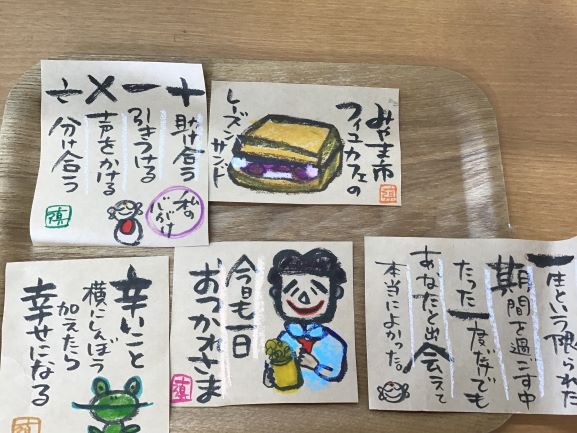 ＋ 助け合う
－ 引きうける
× 声をかける
÷ 分け合う
私の
心がけ
みやま市
フィユカフェの
レーズンサンド
辛いこと
横にしんぼう
加えたら
幸せになる
今日も一日
おつかれさま
一生という限られた
期間を過ごす中
たった一度だけでも
あなたと出会えて
本当によかった。